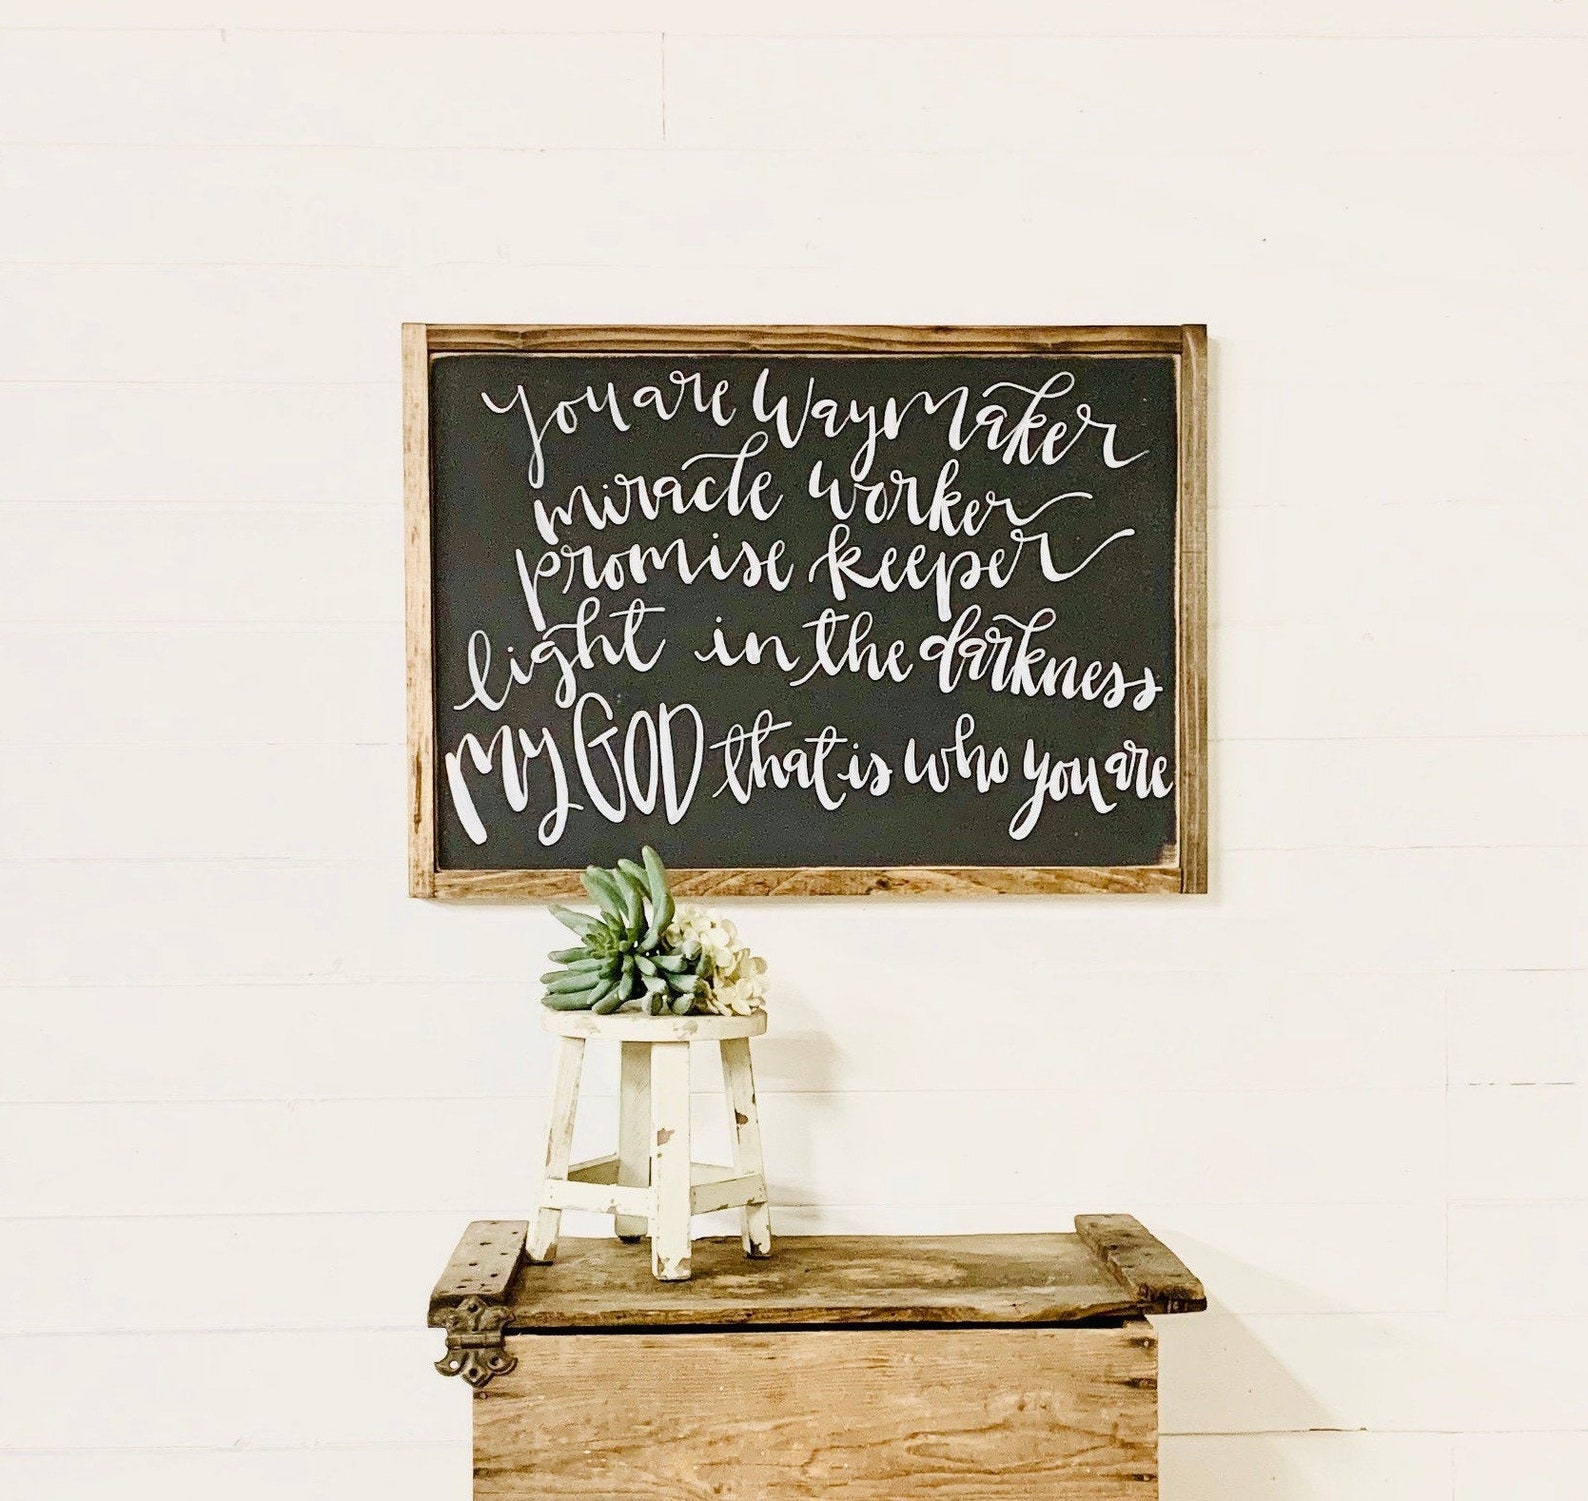 you are Waymaker
miracle worker
promise keeper
light in the darkness
My GOD that is who you are